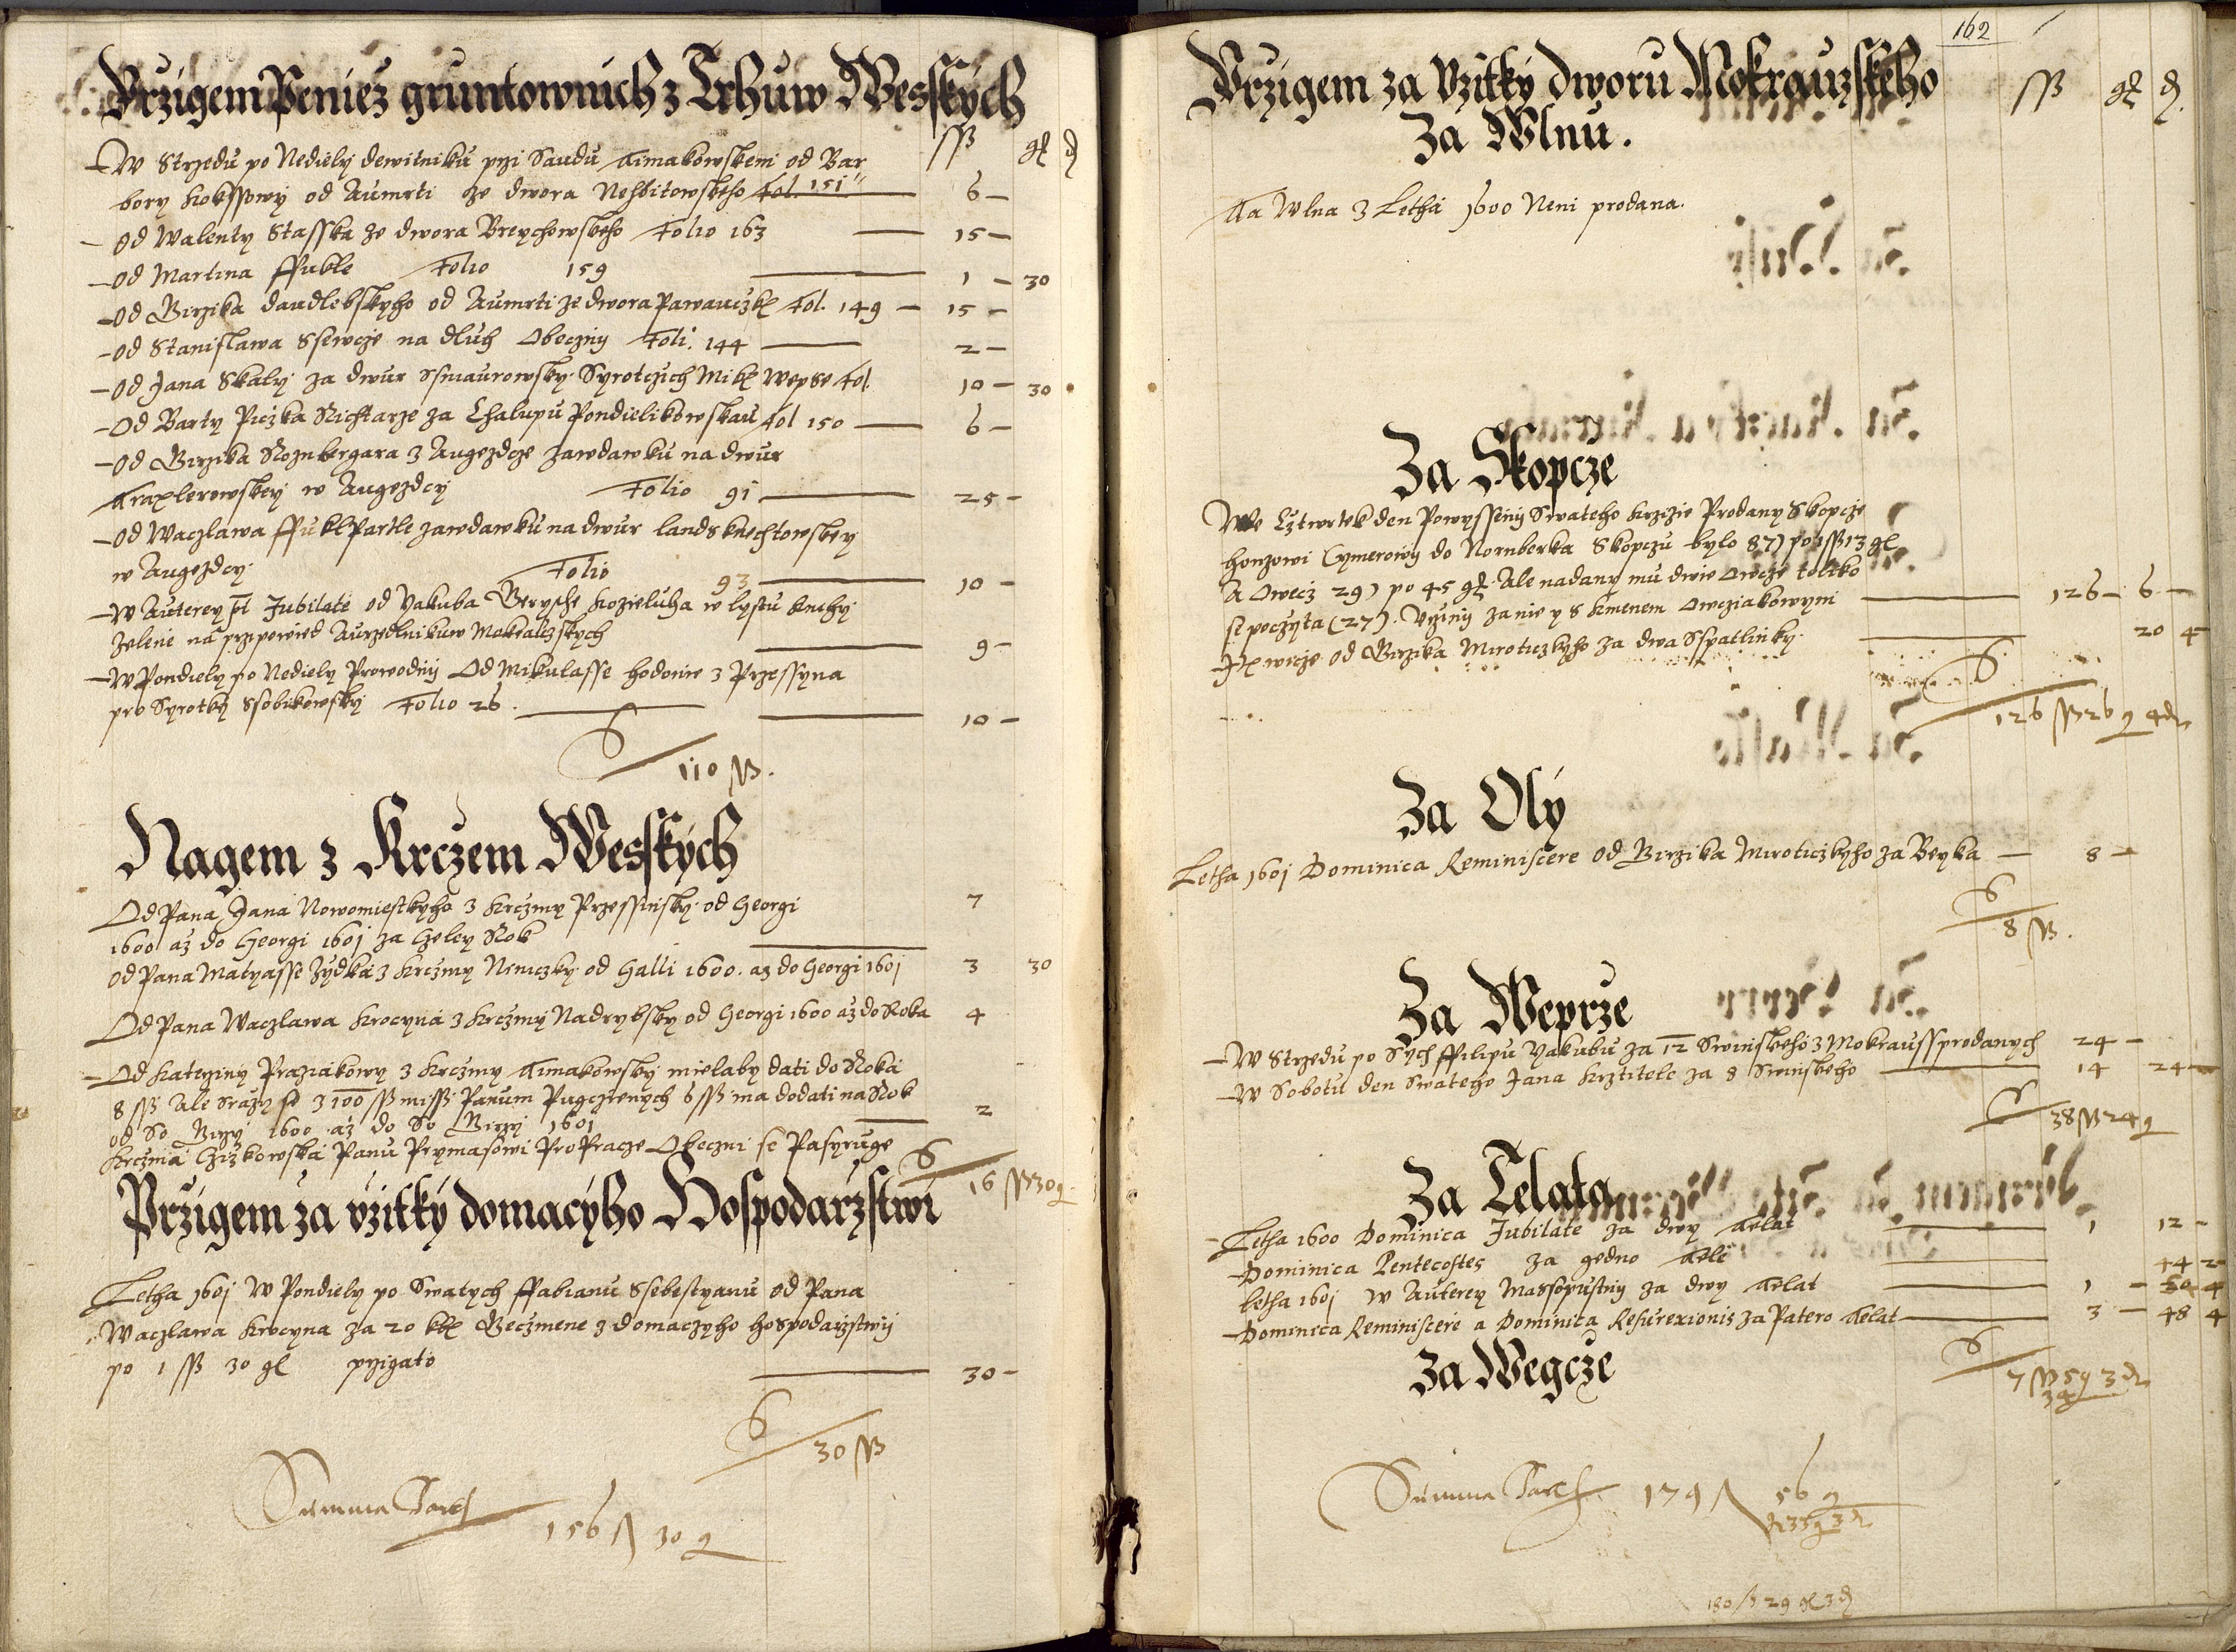 Przigem Peniez gruntownich z Trhuw Wesskych
ss gl d
W Strzedu po Nediely dewitniku przi Saudu Aimakowskem od Bar
bory Kokssowy od Aumrti ze dwora Nehbitowskeho Fol. 151 6 —
od Walenty Stasska ze dwora Breychowskeho Folio 163 15 —
od Martina ffukle Folio 159 1 — 30
od Birzika daudlebskyho od Aumrti ze dwora Fol. 149 — 15 —
od Stanislawa Ssewcze na dluh Obeczny Foli. 144 2 —
od Jana Skaly za dwur Syrotczich Mikl Wepse Fol. 10 — 30
Od Barty Piczka Richtarze za Chalupu Pondielikowskau Fol 150 6 —
od Birzika Roznbergara z Augezdcze zawdawku na dwur
w Augezdcy Folio 91 25 —
od Waczlawa ffukl Partle zawdawku na dwur landsknechtowskey
w Augezdcy. Folio 93 10 —
W Auterey pt Jubilate od Yakuba Berysche Kozieluha w lystu knihy
zelene na przipowied Aurzednikuw Mokrauczskych 9 —
W Pondiely po Nediely Prowodny Od Mikulasse hodonie z Przessyna
pro Syrotky Ssobikowsky Folio 26. 10 —
110 ss.
Nagem z Krczem Wesskych
Od Pana Jana Nowomiestkyho z Krczmy Przessinsky od Georgi 7
1600 az do Georgi 1601 za Czeley Rok
od Pana Matyasse Zydka z Krczmy Nemczky od Galli 1600. az do Georgi 1601 3 30
Od Pana Waczlawa Krocyna z Krczmy Nadrybsky od Georgi 1600 az do Roka 4
Od Kateziny Praziakowy z Krczmy Aimakowsky mielaby dati do Roka
8 ss Ale Srazy se z 100 ss miss. Panum Pugczenych 6 ss ma dodati na Rok
od So Birzy 1600 az do So Birzy 1601 2
Krczma Czizkowska Panu Prymasowi Pro Pracze Obeczni se Pasyruge
16 ss 30 g
Przigem za vzitky domacyho Hospodarzstwi
Letha 1601 W Pondiely po Swatych ffabianu Ssebestyanu od Pana
Waczlawa Krocyna za 20 Beczmene z domaczyho hospodarzstwy
po 1 ss 30 gl przigato 30 —
30 ss
Summa 156 30 g
162
Przigem za Vzitky dworu Mokrauzskeho
ss gl d.
Za Wlnu.
Ta Wlna z Letha 1600 Neni prodana.
Za Skopcze
We Cztwrtek den Powysseny Swateho Krzize Prodany Skopcze
honzowi Cymerowy do Nornberka Skopczu bylo 87) po 1 ss 13 gl
A Owecz 29) po 45 gl Ale nadany mu dwie Owcze toliko
se poczyta (27). Vcziny za nie y s kmenem Owcziakowym 126 — 6 —
wicze od Birzika Miroticzkyho za dwa Sspatlinky 20 4
126 ss 26 g 4 d
Za Oly
Letha 1601 Dominica Reminiscere od Birzika Miroticzkyho za Beyka — 8 —
8 ss.
Za Weprze
W Strzedu po Sych ffilipu Yakubu za 12 Swinskeho z Mokrauss prodanych 24 —
W Sobotu den Swateho Jana Krztitele za 8 Swinskeho 14 24 —
38 ss 24 g
Za Telata
Letha 1600 Dominica Jubilate za dwy Telat 1 12 —
Dominica Pentecostes za gedno Tele 44 2
letha 1601 W Auterey Massopustny za dwy Telat 1 — 4
Dominica Reminiscere a Dominica Resurexionis za Patero Telat 3 — 48 4
7 ss 59 3 d
34
Za Wegcze
Summa 179 56 g
33 g 3 d
180 ss 29 gl 3 d